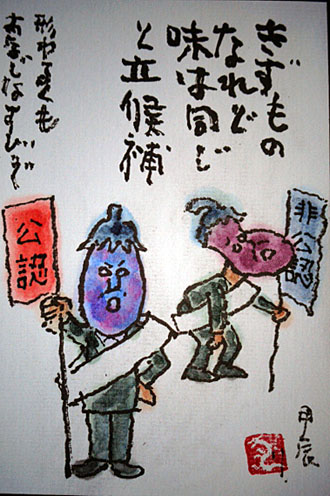 きずもの
なれど
味は同じ
と立候補
形わるくも
おなじなすびぞ
非公認
公認
甲辰